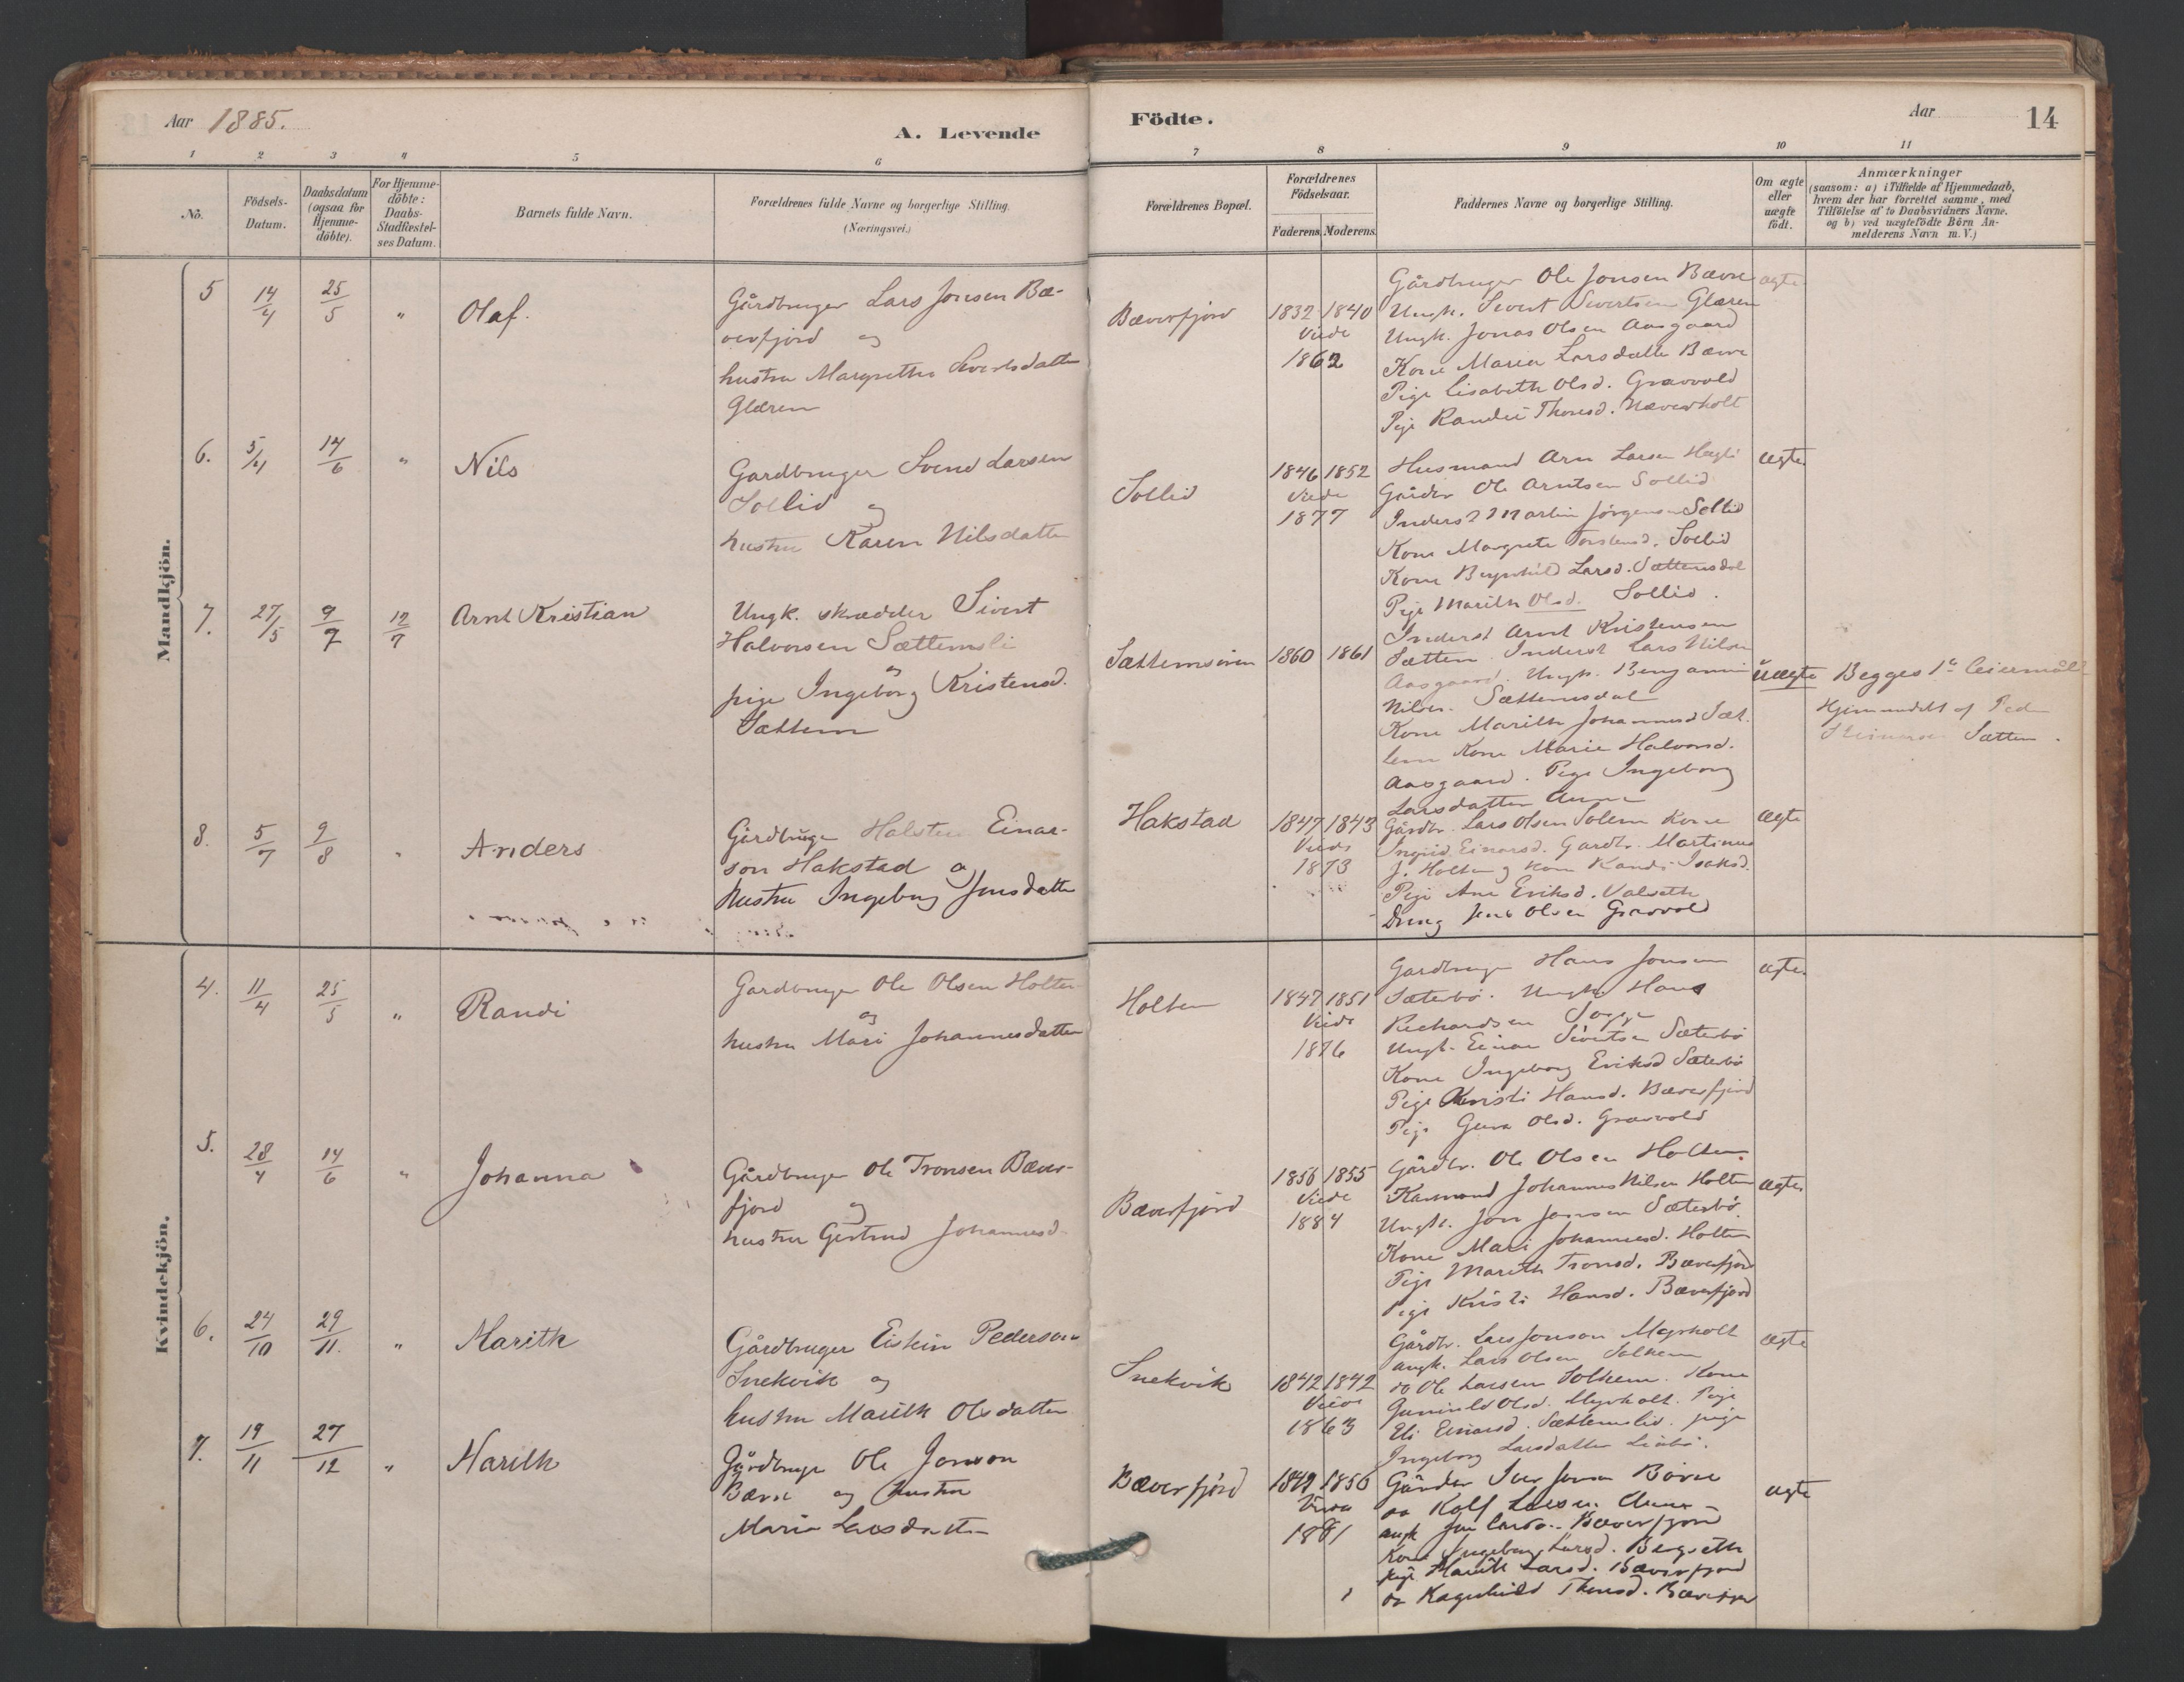 Aar 1885.
A. Levende
Födte.
Aar
14
1
2
3
4
5
6
7
8
9
10
11
No.
Födsels-
Datum.
Daabsdatum
(ogsaa for
Hjemme-
döbte).
For Hjemme-
döbte:
Daabs-
Stadfæstel-
ses Datum.
Barnets fulde Navn.
Forældrenes fulde Navne og borgerlige Stilling.
(Næringsvei.)
Forældrenes Bopæl.
Forældrenes
Födselsaar.
Faderens Moderens
Faddernes Navne og borgerlige Stilling.
Om ægte
eller
uægte
födt.
Anmærkninger
(saasom: a) i Tilfælde af Hjemmedaab,
hvem der har forrettet samme, med
Tilföielse af to Daabsvidners Navne.
og b) ved uægtefödte Börn An-
melderens Navn m.V.)
Mandkjön.
5 14/4 25/5 " Olaf.
Gårdbruger Lars Jonsen Bæ-
verfjord og
hustru Margrethe Sivertsdatter
Glæren
Bæverfjord
1832 1840
Viede
1862
Gårdbruger Ole Jonsen Bævre
Ungk. Sivert Sivertsen Glæren
Ungk. Jonas Olsen Aasgaard
Kone Maria Larsdatter Bævre
Pige Lisabeth Olsd. Gravvold
Pige Randi Thoresd. Næverholt
ægte
6. 5/4 14/6 " Nils
Gardbruger Svend Larsen
Sollid og
hustru Karen Nilsdatter
Sollid
1846 1852
Viede
1877
Husmand Arn Larsen
Gårdbr Ole Arntsen Sollid
Inderst Martin Jörgensen Sollid
Kone Margrete Sollid
Kone Larsd. Sættemsdal
Pige Marith Olsd. Sollid.
ægte
7. 27/5 9/7 12/7 Arnt Kristian
Ungk. skrædder Sivert
Halvorsen Sættemsli
og
pige Ingeborg Kristensd.
Sættem
Sættemsören
1860 1861
Inderst Arnt Kristensen
Sættem. Inderst Lars Nilsen
Aasgaard. Ungk. Benjamin
Nilsen. Sættemsdal
Kone Marith Johannesd. Sæt-
tem Kone Marie Halvorsd.
Aasgaard. Pige Ingeborg
Larsdatter
uægte
Begges 1ste leiermål
Hjemmedöbt af Peder
Sættem.
8. 5/7 9/8 " Anders
Gårdbruger Halsten Einar-
son Hakstad og
hustru Ingeborg Jonsdatter
Hakstad
1847 1843
Viede
1873
Gårdbr. Lars Olsen Solem Kone
Ingrid Einarsd. Gardbr. Martinus
J. Holten og kone Randi Isaksd.
Pige Ane Eriksd. Valseth
Dreng Jens Olsen Gravvold
ægte
Kvindekjön.
4. 11/4 25/5 " Randi
Gardbruger Ole Olsen Holten
og
hustru Mari Johannesdatter
Holten
1847 1851
Viede
1876
Gardbruger Hans Jonsen
Sæterbö. Ungk. Hans
Richardsen
Ungk. Einar Sivertsen Sæterbö
Kone Ingeborg Eriksd Sæterbö
Pige Kristi Hansd. Bæverfjord
Pige Guru Olsd. Gravvold
ægte
5. 28/4 14/6 " Johanna
Gårdbruger Ole Tronsen Bæver-
fjord og
hustru Gjertrud Johannesd.
Bæverfjord
1856 1855
Viede
1884
Gårdbr. Ole Olsen Holten
Kaarmand Johannes Nilsen Holten
Ungk. Jon Jonsen Sæterbö.
Kone Mari Johannesd. Holten
Pige Marith Tronsd. Bæverfjord
Pige Kristi Hansd. Bæverfjord
ægte
6. 24/10 29/11. " Marith
Gårdbruger Eistein Pederson
Snekvik og
hustru Marith Olsdatter
Snekvik
1842 1842
Viede
1863
Gårdbr. Lars Jonson Myrholt
ungk. Lars Olsen Solhem
do Ole Larsen Solhem. Kone
Gunnild Olsd. Myrholt. Pige
Eli Einarsd. Sættemslid. pige
Ingeborg Larsdatter
ægte
7. 19/11 27/12 " Marith
Gårdbruger Ole Jonson
Bævre og hustru
Maria Larsdatter
Bæverfjord
1849 1856
Viede
1881
Gårdbr Iver Jonsen Bævre
do Rolf Larsen
ungk Jon Larson Bæverfjord
Kone Ingeborg Larsd. Bergseth
pige Marith Larsd. Bæverfjord
do Ragnhild Thoresd. Bæverfjor
ægte